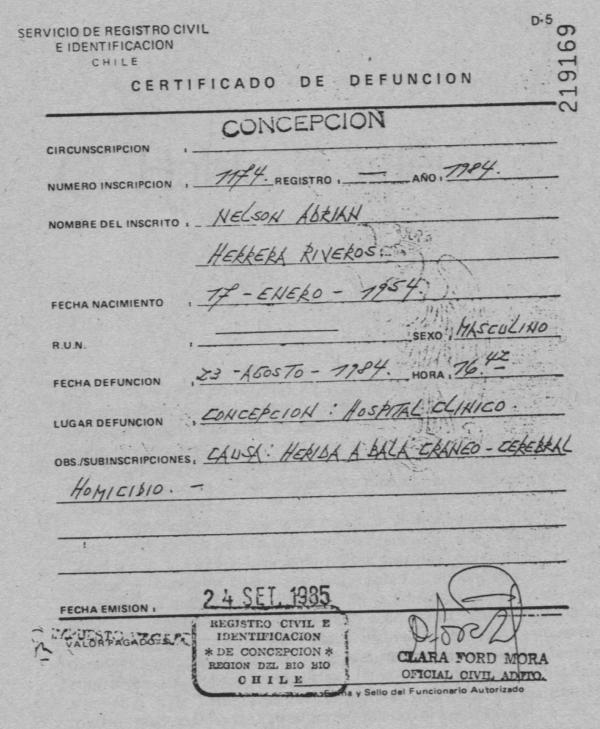 D-5
SERVICIO DE REGISTRO CIVIL
E IDENTIFICACION
CHILE
219169
CERTIFICADO DE DEFUNCION
CONCEPCION
CIRCUNSCRIPCION :
NUMERO INSCRIPCION : 1174. REGISTRO : — AÑO : 1984.
NOMBRE DEL INSCRITO : NELSON ADRIAN
HERRERA RIVEROS.
FECHA NACIMIENTO : 17 - ENERO - 1954.
R.U.N. : SEXO : MASCULINO
FECHA DEFUNCION : 23 - AGOSTO - 1984. HORA : 16.42
LUGAR DEFUNCION : CONCEPCION : HOSPITAL CLINICO.
OBS./SUBINSCRIPCIONES : CAUSA: HERIDA A BALA CRANEO - CEREBRAL
HOMICIDIO. -
FECHA EMISION : 24 SET. 1985
VALOR PAGADO
REGISTRO CIVIL E
IDENTIFICACION
* DE CONCEPCION *
REGION DEL BIO BIO
CHILE
CLARA FORD MORA
OFICIAL CIVIL ADJTO.
Firma y Sello del Funcionario Autorizado